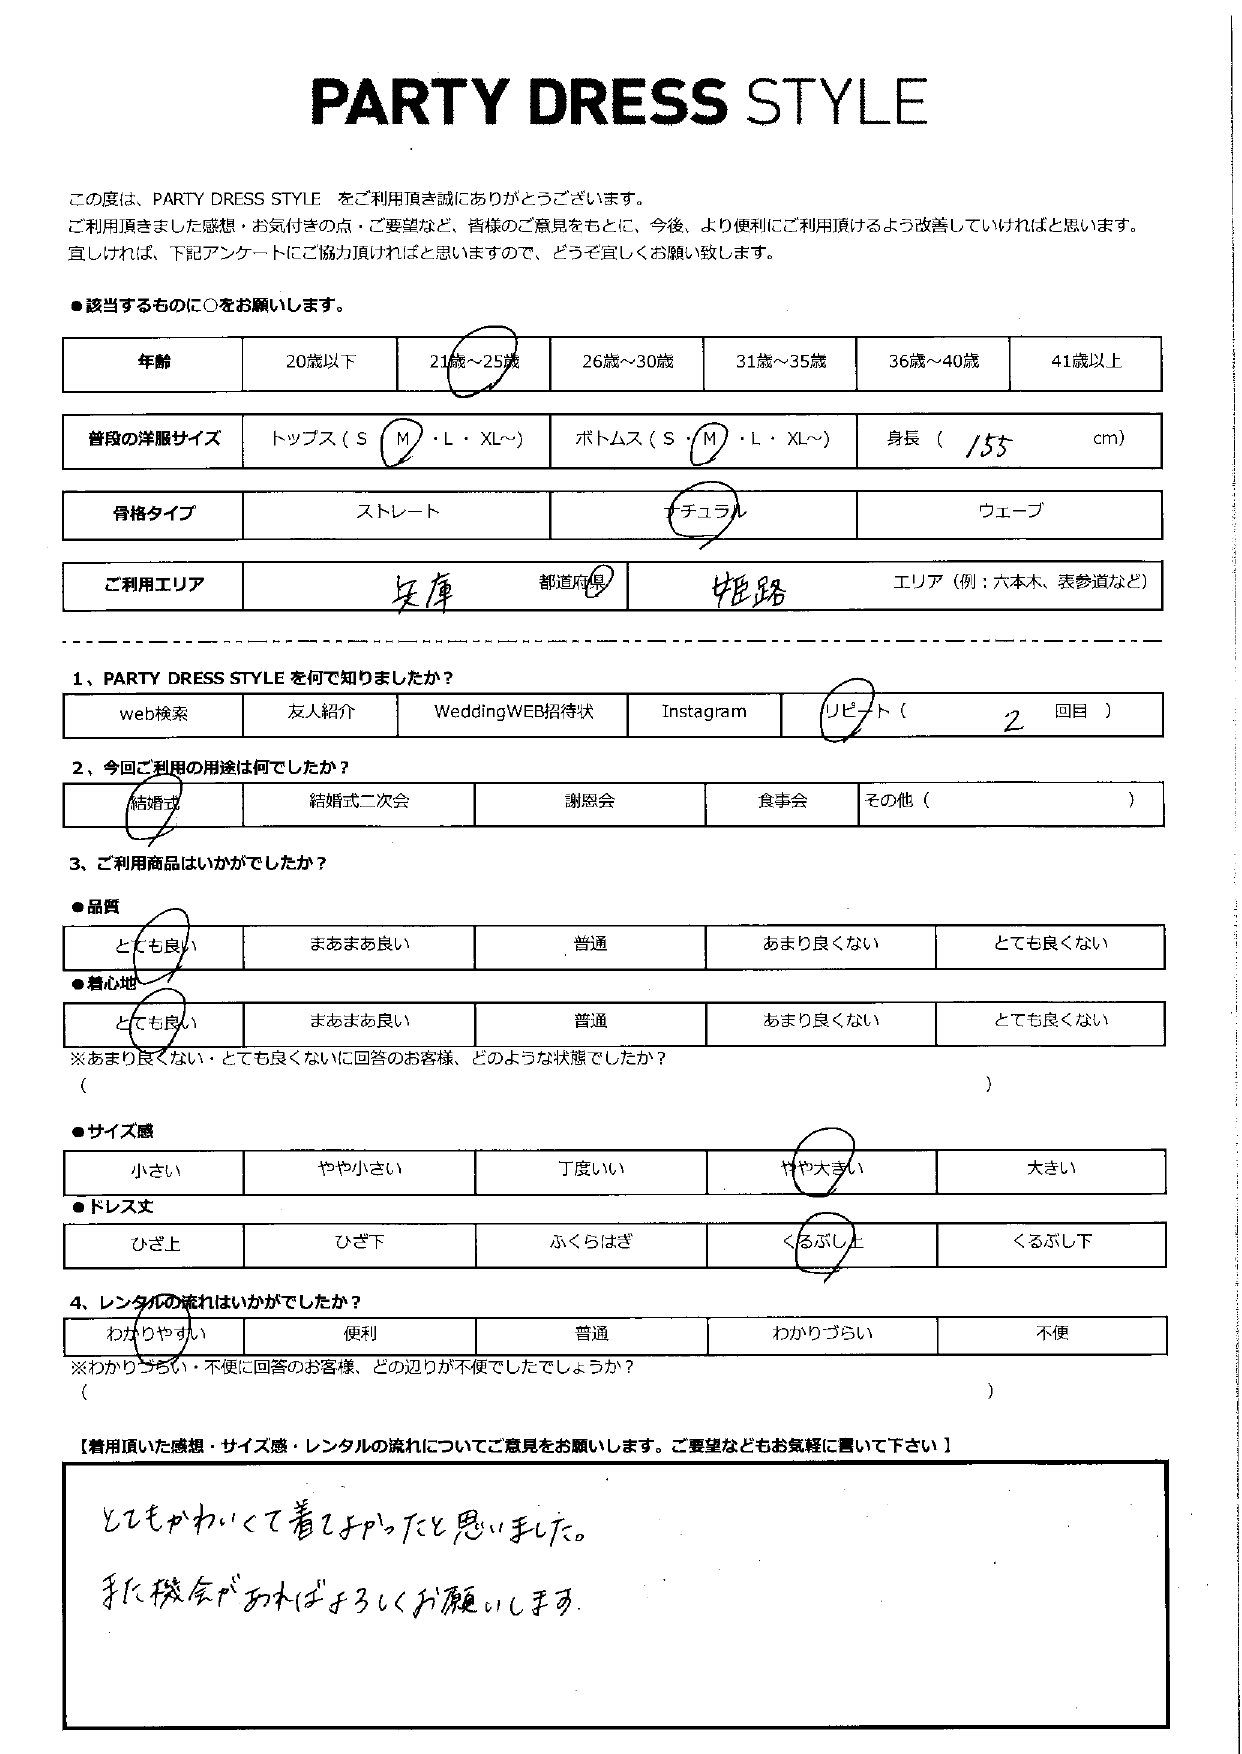 PARTY DRESS STYLE
この度は、PARTY DRESS STYLE をご利用頂き誠にありがとうございます。
ご利用頂きました感想・お気付きの点・ご要望など、皆様のご意見をもとに、今後、より便利にご利用頂けるよう改善していければと思います。
宜しければ、下記アンケートにご協力頂ければと思いますので、どうぞ宜しくお願い致します。
●該当するものに○をお願いします。
年齢 20歳以下 21歳～25歳 26歳～30歳 31歳～35歳 36歳～40歳 41歳以上
普段の洋服サイズ トップス（ S ・ M ・L ・ XL～） ボトムス（ S ・ M ・L ・ XL～） 身長 （ 155 cm）
骨格タイプ ストレート ナチュラル ウェーブ
ご利用エリア 兵庫 都道府県 姫路 エリア（例：六本木、表参道など）
1、PARTY DRESS STYLE を何で知りましたか？
web検索 友人紹介 WeddingWEB招待状 Instagram リピート（ 2 回目 ）
2、今回ご利用の用途は何でしたか？
結婚式 結婚式二次会 謝恩会 食事会 その他（ ）
3、ご利用商品はいかがでしたか？
●品質
とても良い まあまあ良い 普通 あまり良くない とても良くない
●着心地
とても良い まあまあ良い 普通 あまり良くない とても良くない
※あまり良くない・とても良くないに回答のお客様、どのような状態でしたか？
（ ）
●サイズ感
小さい やや小さい 丁度いい やや大きい 大きい
●ドレス丈
ひざ上 ひざ下 ふくらはぎ くるぶし上 くるぶし下
4、レンタルの流れはいかがでしたか？
わかりやすい 便利 普通 わかりづらい 不便
※わかりづらい・不便に回答のお客様、どの辺りが不便でしたでしょうか？
（ ）
【着用頂いた感想・サイズ感・レンタルの流れについてご意見をお願いします。ご要望などもお気軽に書いて下さい 】
とてもかわいくて着てよかったと思いました。
また機会があればよろしくお願いします.